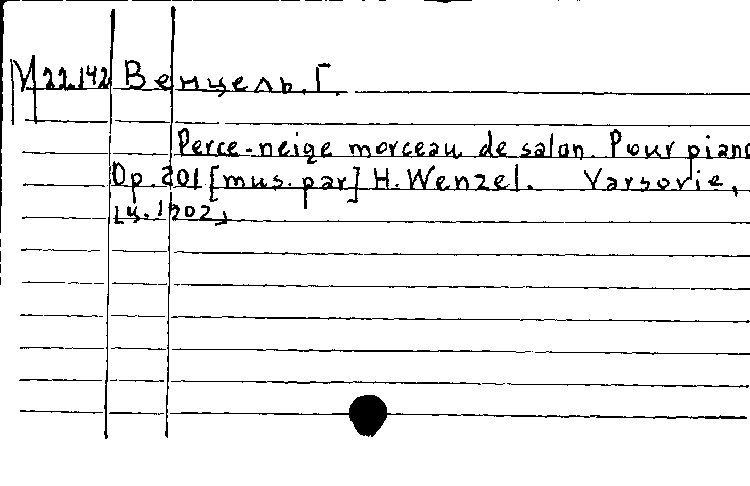 М 22.142 Венцель. Г.
Perce-neige morceau de salon. Pour piano
Op. 201 [mus. par] H. Wenzel. Varsovie,
[ц. 1902]